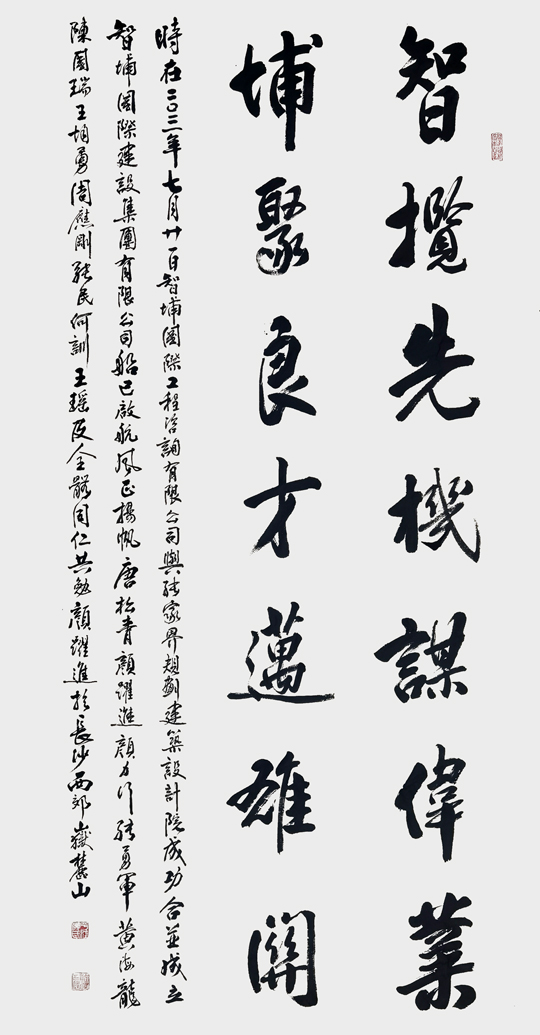 智攬先機謀偉業
埔聚良才邁雄關
時在二〇二三年七月廿一日智埔國際工程咨詢有限公司與張家界規劃建築設計院成功合並成立
智埔國際建設集團有限公司船已啟航風正揚帆唐松青顏躍進顏力行張勇軍黃海龍
陳國瑞王均勇周應剛張民何訓王瑶及全體同仁共勉顏躍進於長沙西郊嶽麓山